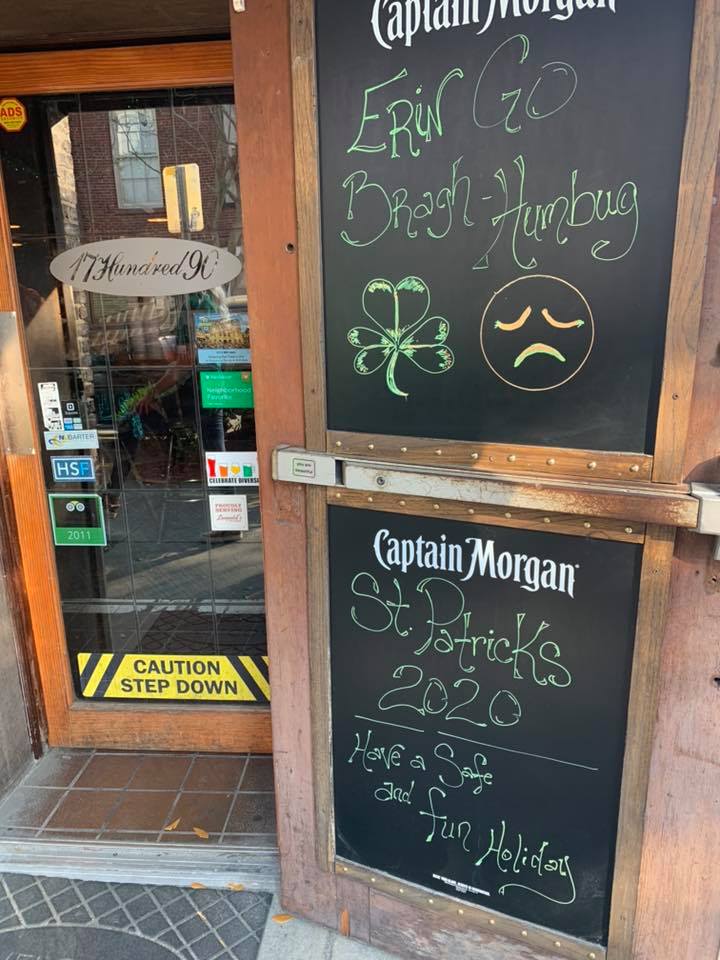 Captain Morgan
ERIN GO
Bragh-Humbug
Captain Morgan
St. Patricks
2020
Have a Safe
and
fun Holiday
ADS
17Hundred90
Neighborhood
Favorite
BARTER
HSF
2011
CELEBRATE DIVERSI
PROUDLY
SERVING
CAUTION
STEP DOWN